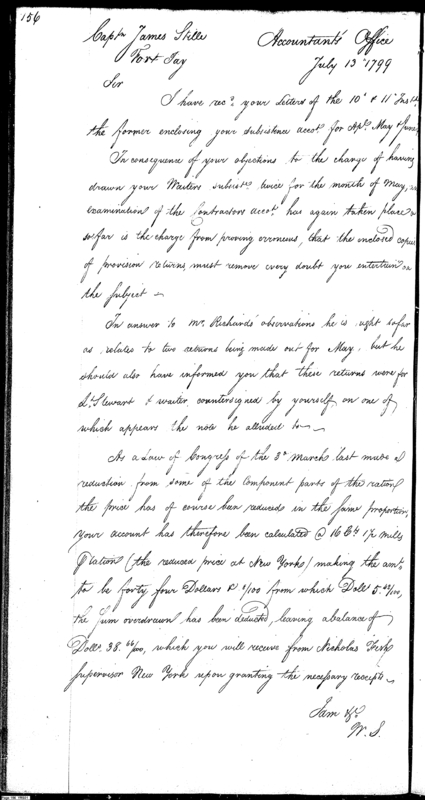 156
Captn James Stille Accountants Office
Fort Jay July 13th 1799
Sir
I have recd your Letters of the 10th & 11th Inst
the former enclosing your subsistence accot for Apl May & June
In consequence of your objections to the charge of having
drawn your Waiters subsistce twice for the month of May, an
examination of the Contractors accot has again taken place &
so far is the charge from proving erroneous, that the enclosed copies
of provision returns must remove every doubt you entertain on
the subject
In answer to Mr Richards' observations he is right so far
as relates to two returns being made out for May, but he
should also have informed you that these returns were for
Lt Stewart & waiter countersigned by yourself on one of
which appears the note he alluded to
As a Law of Congress of the 3d March last made a
reduction from some of the component parts of the ration
the price has of course been reduced in the same proportion,
your account has therefore been calculated @ 16 Cts 1/2 mills
Pration (the reduced price at New York) making the amt
to be forty four Dollars & /100 from which Dolls 5. /100,
the sum overdrawn has been deducted, leaving a balance of
Dolls 38. 66/100, which you will receive from Nicholas Fish
supervisor New York upon granting the necessary receipts
I am &c
W. S.